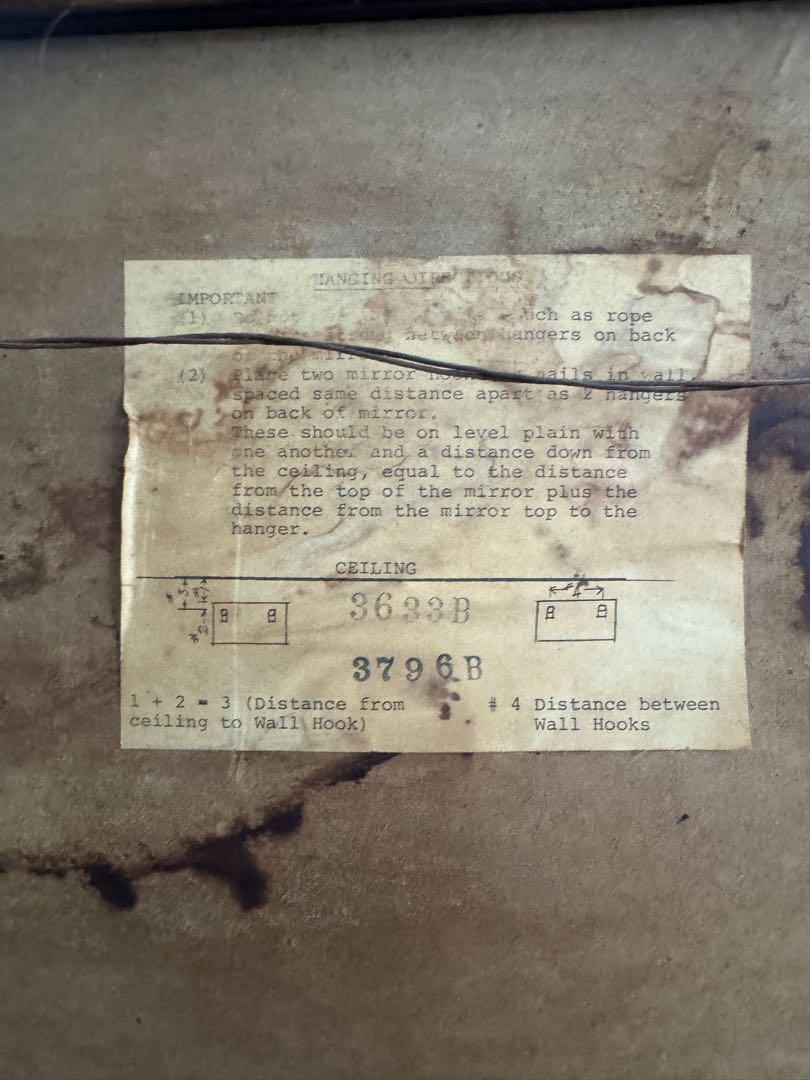 HANGING DIRECTIONS
IMPORTANT
(1) Do not such as rope
between hangers on back
of the mirror
(2) Place two mirror nails in wall,
spaced same distance apart as 2 hangers
on back of mirror.
These should be on level plain with
one another and a distance down from
the ceiling, equal to the distance
from the top of the mirror plus the
distance from the mirror top to the
hanger.
CEILING
3633B
3796B
1 + 2 = 3 (Distance from
ceiling to Wall Hook)
# 4 Distance between
Wall Hooks